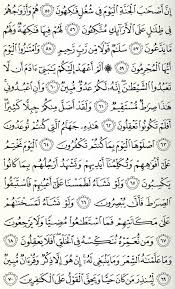 إِنَّ أَصْحَٰبَ ٱلْجَنَّةِ ٱلْيَوْمَ فِى شُغُلٍ فَٰكِهُونَ ٥٥ هُمْ وَأَزْوَٰجُهُمْ
فِى ظِلَٰلٍ عَلَى ٱلْأَرَآئِكِ مُتَّكِـُٔونَ ٥٦ لَهُمْ فِيهَا فَٰكِهَةٌ وَلَهُم
مَّا يَدَّعُونَ ٥٧ سَلَٰمٌ قَوْلًا مِّن رَّبٍّ رَّحِيمٍ ٥٨ وَٱمْتَٰزُوا۟ ٱلْيَوْمَ
أَيُّهَا ٱلْمُجْرِمُونَ ٥٩ ۞ أَلَمْ أَعْهَدْ إِلَيْكُمْ يَٰبَنِىٓ ءَادَمَ أَن
لَّا تَعْبُدُوا۟ ٱلشَّيْطَٰنَ إِنَّهُۥ لَكُمْ عَدُوٌّ مُّبِينٌ ٦٠ وَأَنِ ٱعْبُدُونِى
هَٰذَا صِرَٰطٌ مُّسْتَقِيمٌ ٦١ وَلَقَدْ أَضَلَّ مِنكُمْ جِبِلًّا كَثِيرًا
أَفَلَمْ تَكُونُوا۟ تَعْقِلُونَ ٦٢ هَٰذِهِۦ جَهَنَّمُ ٱلَّتِى كُنتُمْ تُوعَدُونَ
٦٣ ٱصْلَوْهَا ٱلْيَوْمَ بِمَا كُنتُمْ تَكْفُرُونَ ٦٤ ٱلْيَوْمَ نَخْتِمُ
عَلَىٰٓ أَفْوَٰهِهِمْ وَتُكَلِّمُنَآ أَيْدِيهِمْ وَتَشْهَدُ أَرْجُلُهُم بِمَا كَانُوا۟
يَكْسِبُونَ ٦٥ وَلَوْ نَشَآءُ لَطَمَسْنَا عَلَىٰٓ أَعْيُنِهِمْ فَٱسْتَبَقُوا۟
ٱلصِّرَٰطَ فَأَنَّىٰ يُبْصِرُونَ ٦٦ وَلَوْ نَشَآءُ لَمَسَخْنَٰهُمْ
عَلَىٰ مَكَانَتِهِمْ فَمَا ٱسْتَطَٰعُوا۟ مُضِيًّا وَلَا يَرْجِعُونَ
٦٧ وَمَن نُّعَمِّرْهُ نُنَكِّسْهُ فِى ٱلْخَلْقِ أَفَلَا يَعْقِلُونَ ٦٨
وَمَا عَلَّمْنَٰهُ ٱلشِّعْرَ وَمَا يَنۢبَغِى لَهُۥٓ إِنْ هُوَ إِلَّا ذِكْرٌ وَقُرْءَانٌ مُّبِينٌ
٦٩ لِّيُنذِرَ مَن كَانَ حَيًّا وَيَحِقَّ ٱلْقَوْلُ عَلَى ٱلْكَٰفِرِينَ ٧٠